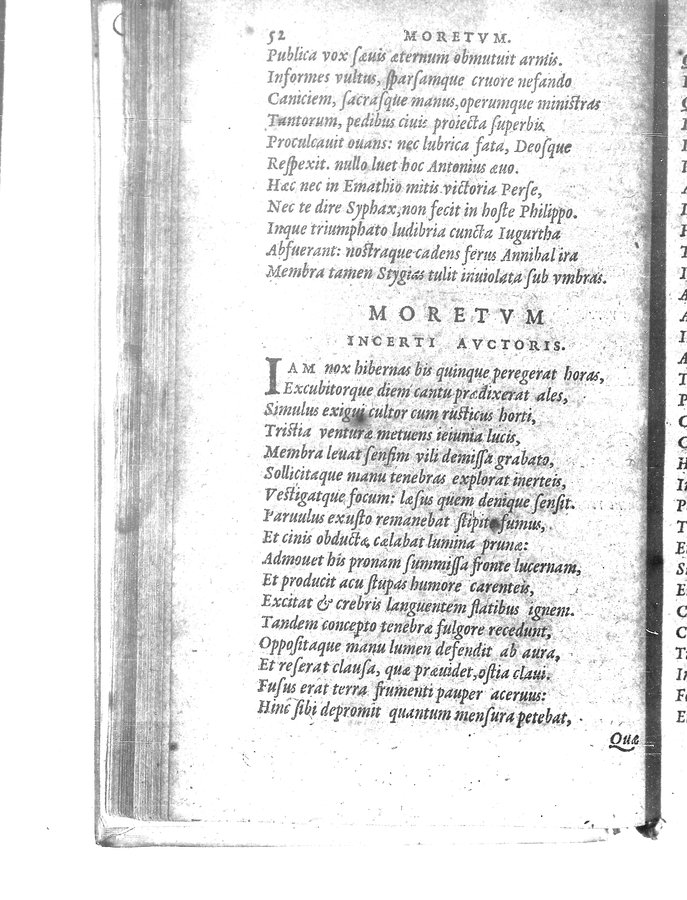 52 MORETVM.
Publica vox sæuis æternum obmutuit armis.
Informes vultus, sparsamque cruore nefando
Caniciem, sacrasque manus, operumque ministras
Tantorum, pedibus ciuis proiecta superbis
Proculcauit ouans: nec lubrica fata, Deosque
Respexit. nullo luet hoc Antonius æuo.
Hæc nec in Emathio mitis victoria Perse,
Nec te dire Syphax, non fecit in hoste Philippo.
Inque triumphato ludibria cuncta Iugurtha
Abfuerant: nostraque cadens ferus Annibal ira
Membra tamen Stygias tulit inuiolata sub vmbras.
MORETVM
INCERTI AVCTORIS.
IAM nox hibernas bis quinque peregerat horas,
Excubitorque diem cantu prædixerat ales,
Simulus exigui cultor cum rusticus horti,
Tristia venturæ metuens ieiunia lucis,
Membra leuat sensim vili demissa grabato,
Sollicitaque manu tenebras explorat inerteis,
Vestigatque focum: læsus quem denique sensit.
Paruulus exusto remanebat stipite fumus,
Et cinis obductæ cælabat lumina prunæ:
Admouet his pronam summissa fronte lucernam,
Et producit acu stupas humore carenteis,
Excitat & crebris languentem flatibus ignem.
Tandem concepto tenebræ fulgore recedunt,
Oppositaque manu lumen defendit ab aura,
Et reserat clausa, quæ præuidet, ostia claui.
Fusus erat terra frumenti pauper aceruus:
Hinc sibi depromit quantum mensura petebat,
Quæ